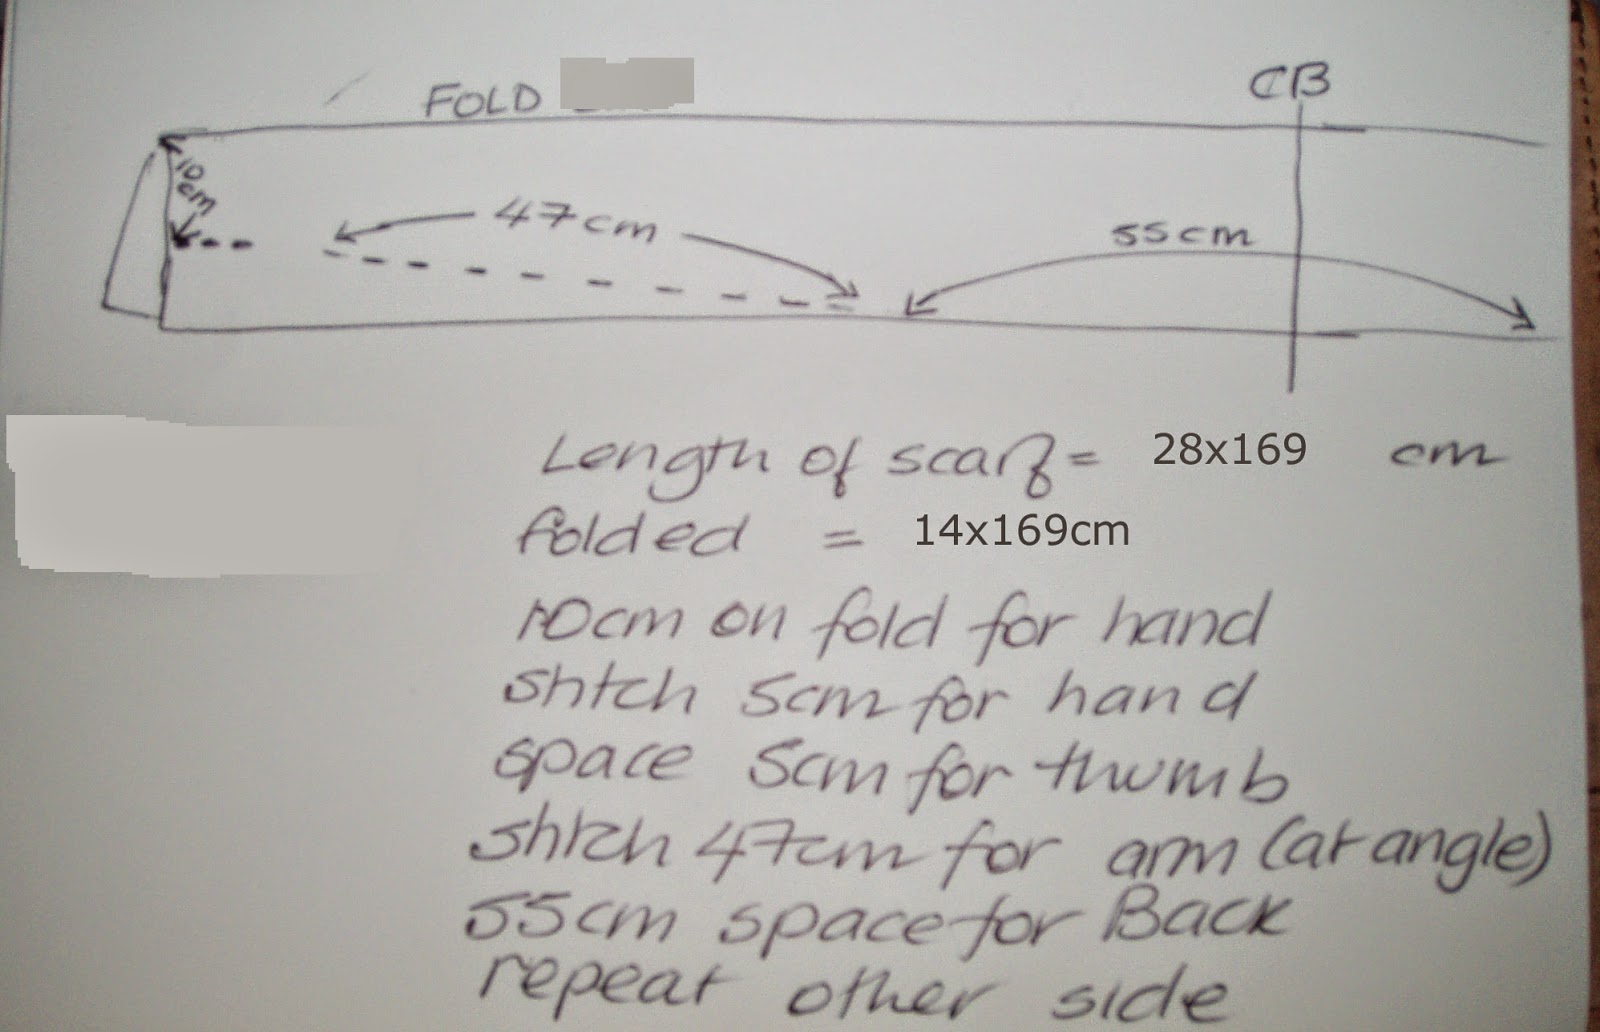 FOLD
CB
10
cm
47cm
55cm
Length of scarf = 28x169 cm
folded = 14x169cm
10cm on fold for hand
stitch 5cm for hand
space 5cm for thumb
stitch 47cm for arm (at angle)
55cm space for Back
repeat other side